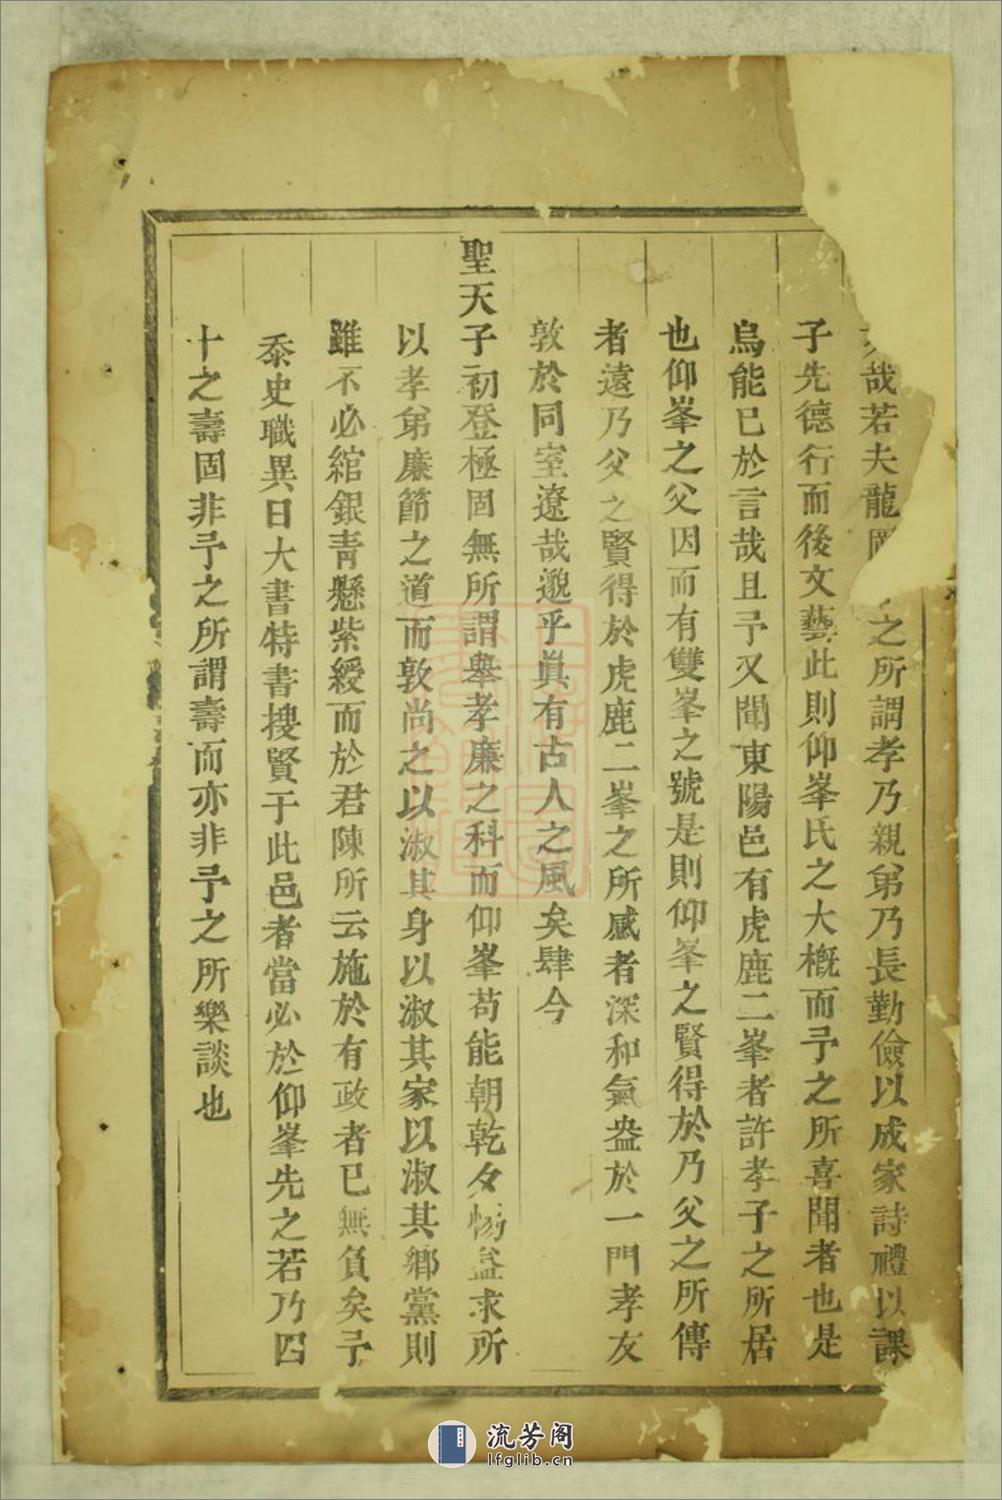 哉若夫龍之所謂孝乃親弟乃長勤儉以成家詩禮以課
子先德行而後文藝此則仰峯氏之大槪而予之所喜聞者也是
烏能已於言哉且予又聞東陽邑有虎鹿二峯者許孝子之所居
也仰峯之父因而有雙峯之號是則仰峯之賢得於乃父之所傳
者遠乃父之賢得於虎鹿二峯之所感者深和氣盎於一門孝友
敦於同室遼哉邈乎眞有古人之風矣肆今
聖天子初登極固無所謂舉孝廉之科而仰峯苟能朝乾夕惕益求所
以孝弟廉節之道而敦尚之以淑其身以淑其家以淑其鄉黨則
雖不必綰銀青懸紫綬而於君陳所云施於有政者已無負矣予
忝史職異日大書特書搜賢于此邑者當必於仰峯先之若乃四
十之壽固非予之所謂壽而亦非予之所樂談也
流芳阁
lfglib.cn